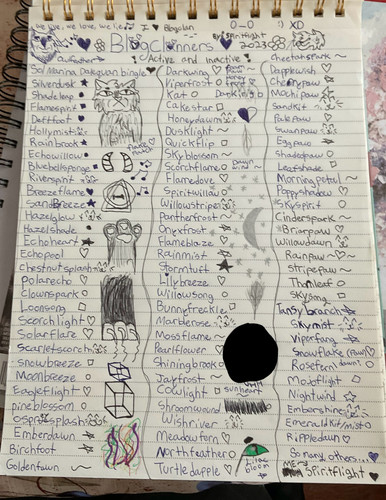 we live, we love, we lie
I ♡ Blogclan
0-0
XD
Blogclanners
By: Spiritflight
2023
Active and Inactive!
Silverdusk
Flamespirit
Jadeleap
Hollymist
Rainbrook
Echowillow
Bluebellsponge
Riverspirit
Breezeflame
Sandbreeze
Hazelglow
Hazelshade
Echoheart
Echopool
Chestnutsplash
Polarecho
Clownspark
Loonsong
Scorchlight
Solarflare
Scarletscorch
Snowbreeze
Moonbreeze
Eagleflight
Pineblossom
Ospreysplash
Emberdawn
Birchfoot
Goldenfawn
Darkwing
Viperfrost
Kat
Cakestar
Honeydawn
Dusklight
Quickflip
Skyblossom
Scorchflame
Flamedove
Spiritwillow
Willowstripe
Pantherfrost
Onyxfrost
Flameblaze
Rainmist
Stormtuft
Lilybreeze
Willowsong
Bunnyfreckle
Marblerose
Mossflame
Pearlflower
Shiningbrook
Jayfrost
Cowlight
sunheart
Shroomwound
Wishriver
Meadowfern
Northfeather
Turtledapple
lilac
bloom
Cheetahspark
Dapplewish
Cherrypaw
Mochi paw
Sandkit
Palepaw
Swanpaw
Eggpaw
Shadepaw
Leafshade
Morningpetal
Poppyshadow
Skyspirit
Cinderspark
Briarpaw
Willowdawn
Rainpaw
Stripepaw
Thornleaf
Skysong
Tansybranch
Skymist
Viperfang
Snowflake (Paw)
Rosefern
dawn
Modflight
Nightwind
Embershine
Emerald Kit/mist
Rippledawn
So many others...
Me:
Spiritflight